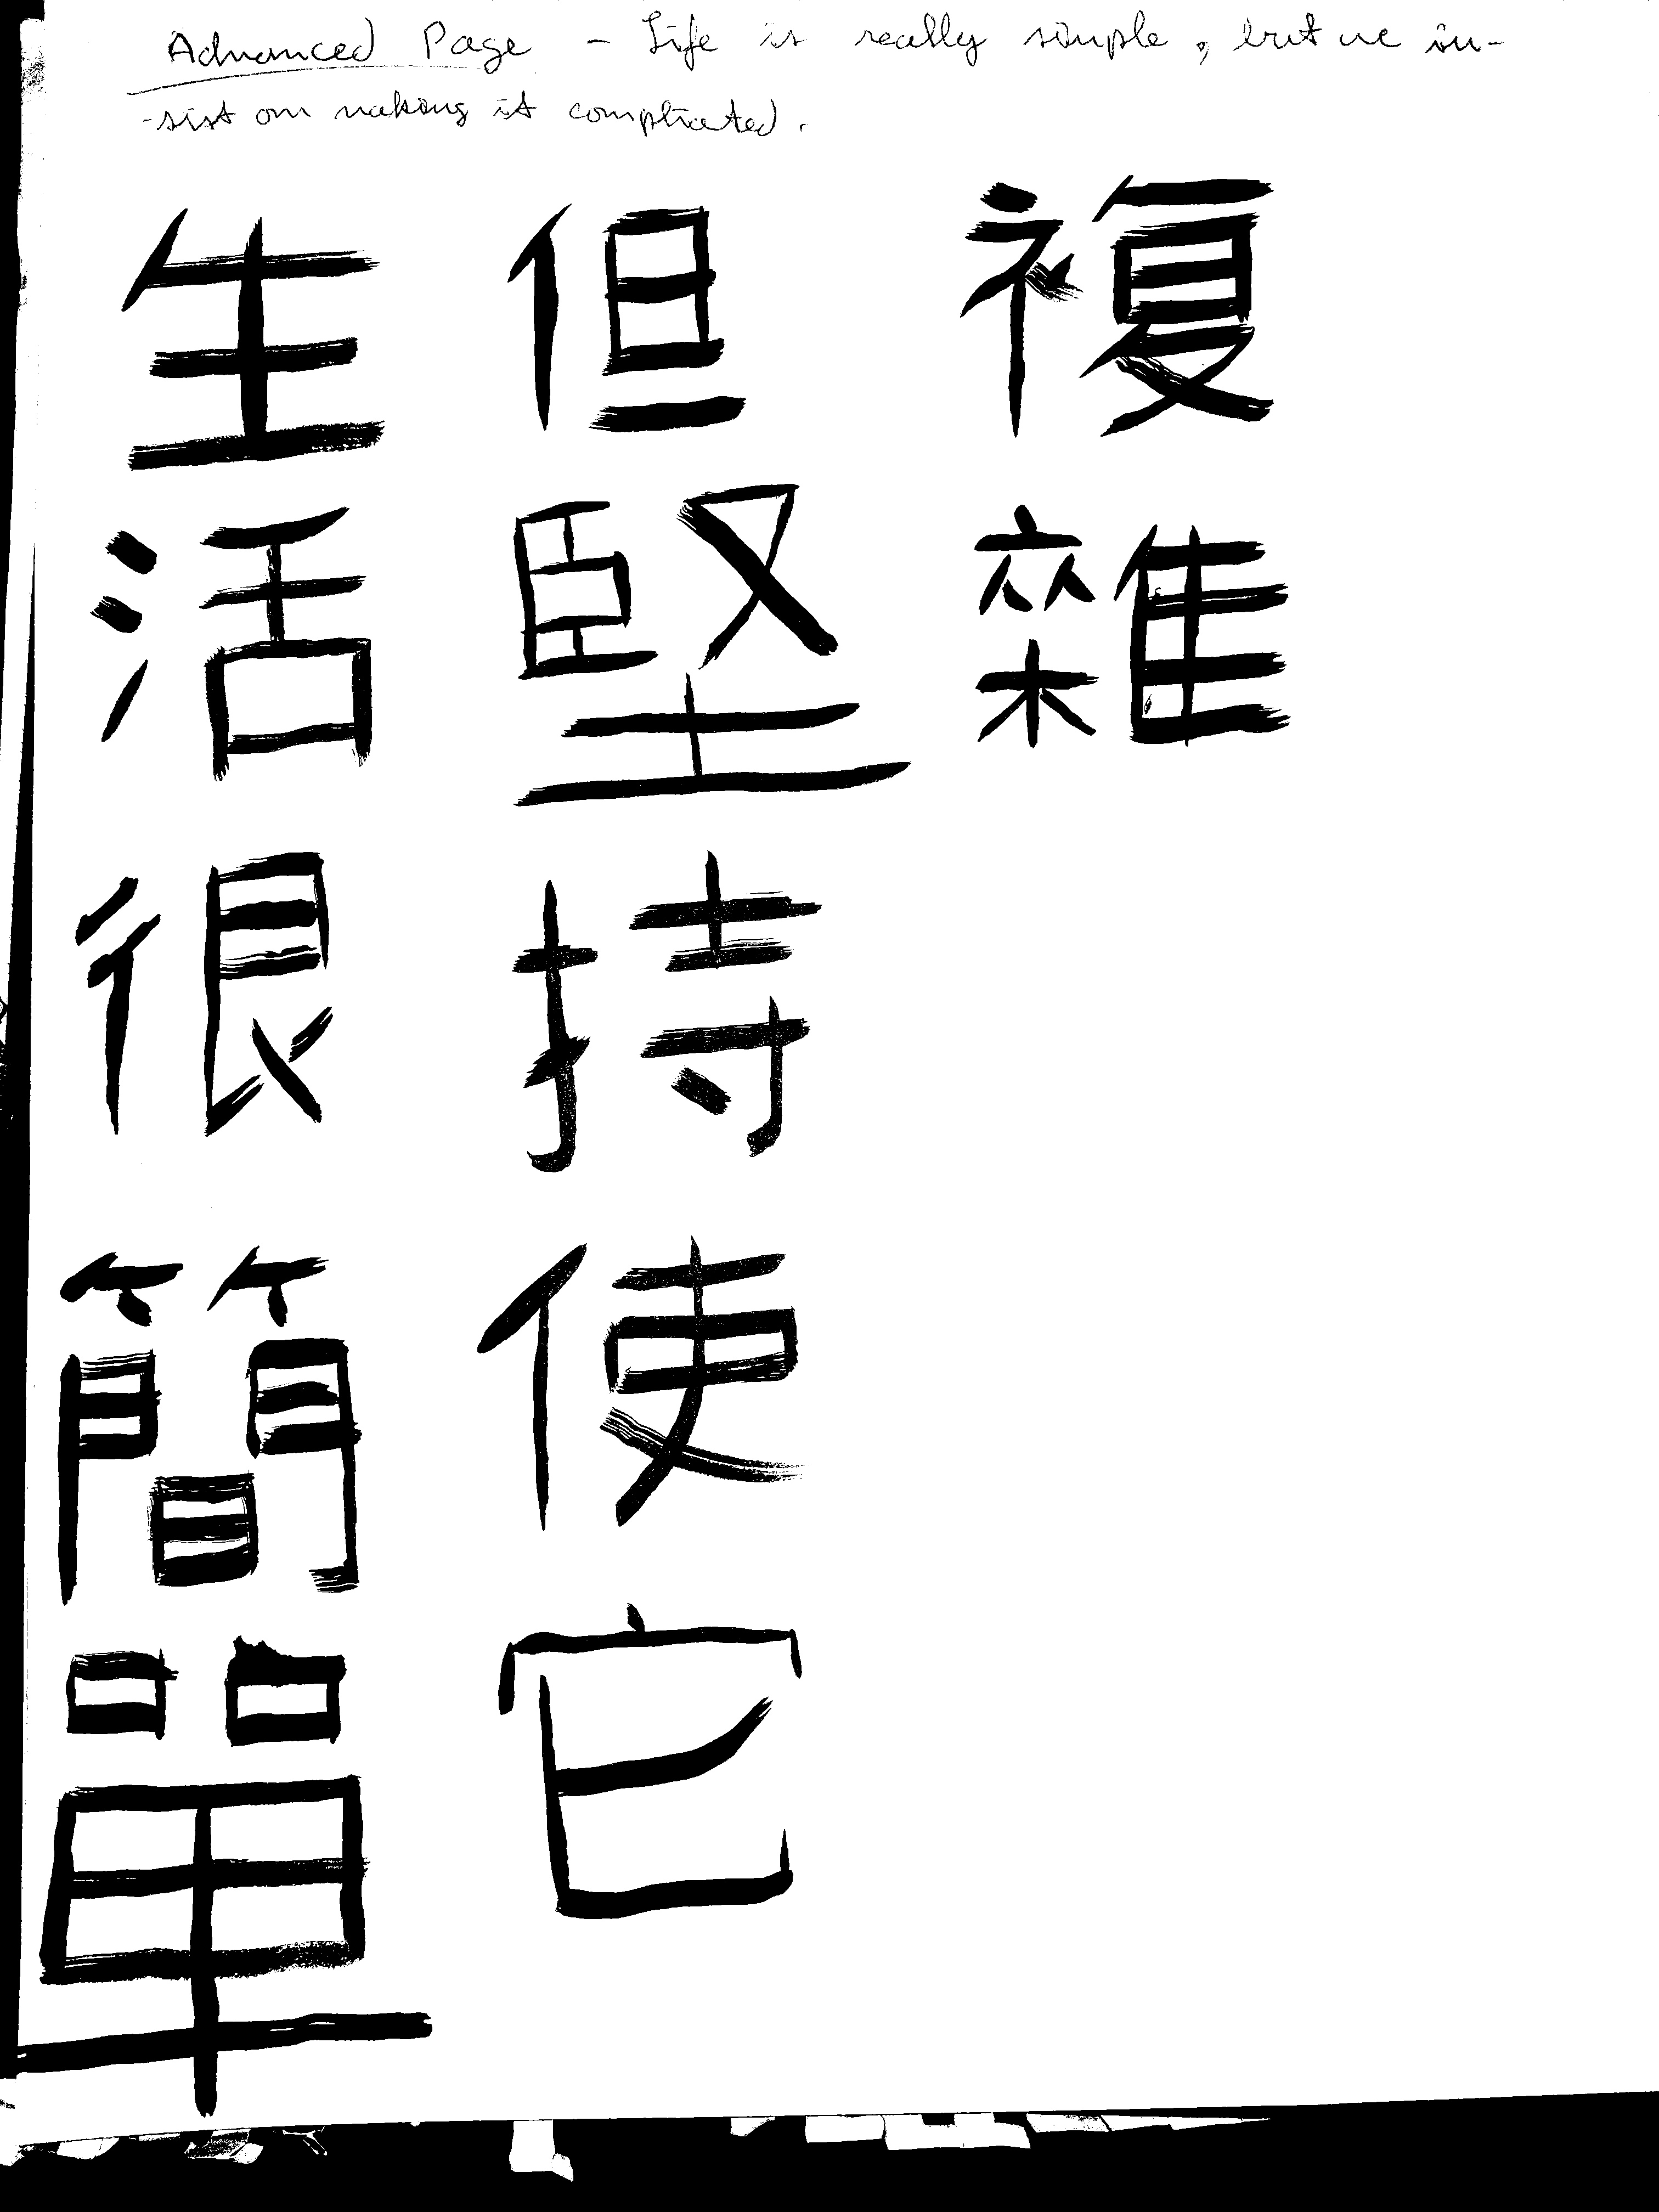 Advanced Page - Life is really simple, but we in-
-sist on making it complicated.
生活很簡單
但堅持使它
複雜